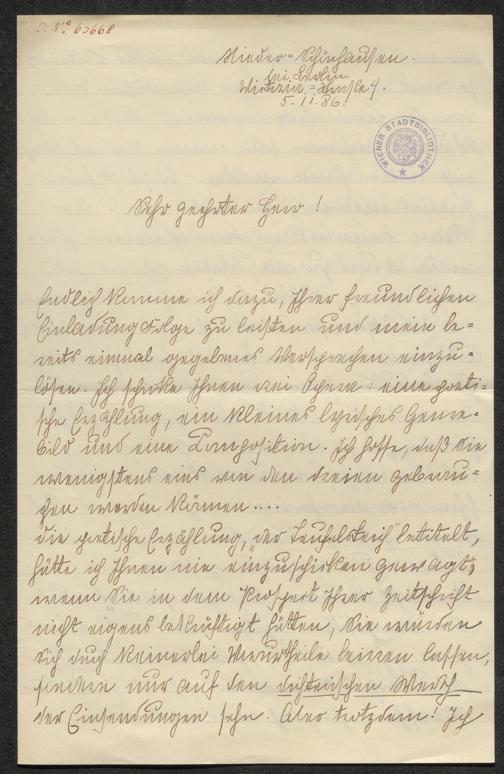 J. Nº 63668
Nieder-Schönhausen.
bei Berlin
5.11.86.
WIENER STADTBIBLIOTHEK
Sehr geehrter Herr!
Endlich komme ich dazu, Ihrer freundlichen
Einladung Folge zu leisten und mein be-
reits einmal gegebenes Versprechen einzu-
lösen. Ich schicke Ihnen drei Opera: eine poeti-
sche Erzählung, ein kleines lyrisches Genre-
bild und eine Composition. Ich hoffe, daß Sie
wenigstens eins von den dreien gebrau-
chen werden können....
Die poetische Erzählung, "der Teufelsteich" betitelt,
hätte ich Ihnen nie einzuschicken gewagt,
wenn Sie in dem Prospect Ihrer Zeitschrift
nicht eigens bekräftigt hätten, Sie würden
sich durch keinerlei Vorurtheile leiten lassen,
sondern nur auf den dichterischen Werth
der Einsendungen sehn. Aber trotzdem! Ich